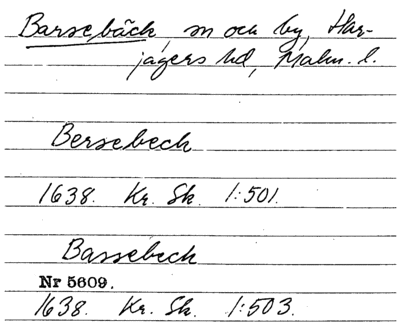 Barsebäck, sn och by, Har-
jagers hd, Malm. l.
Bersebeck
1638. Kr. Sk. 1:501.
Bassebeck
Nr 5609.
1638. Kr. Sk. 1:503.